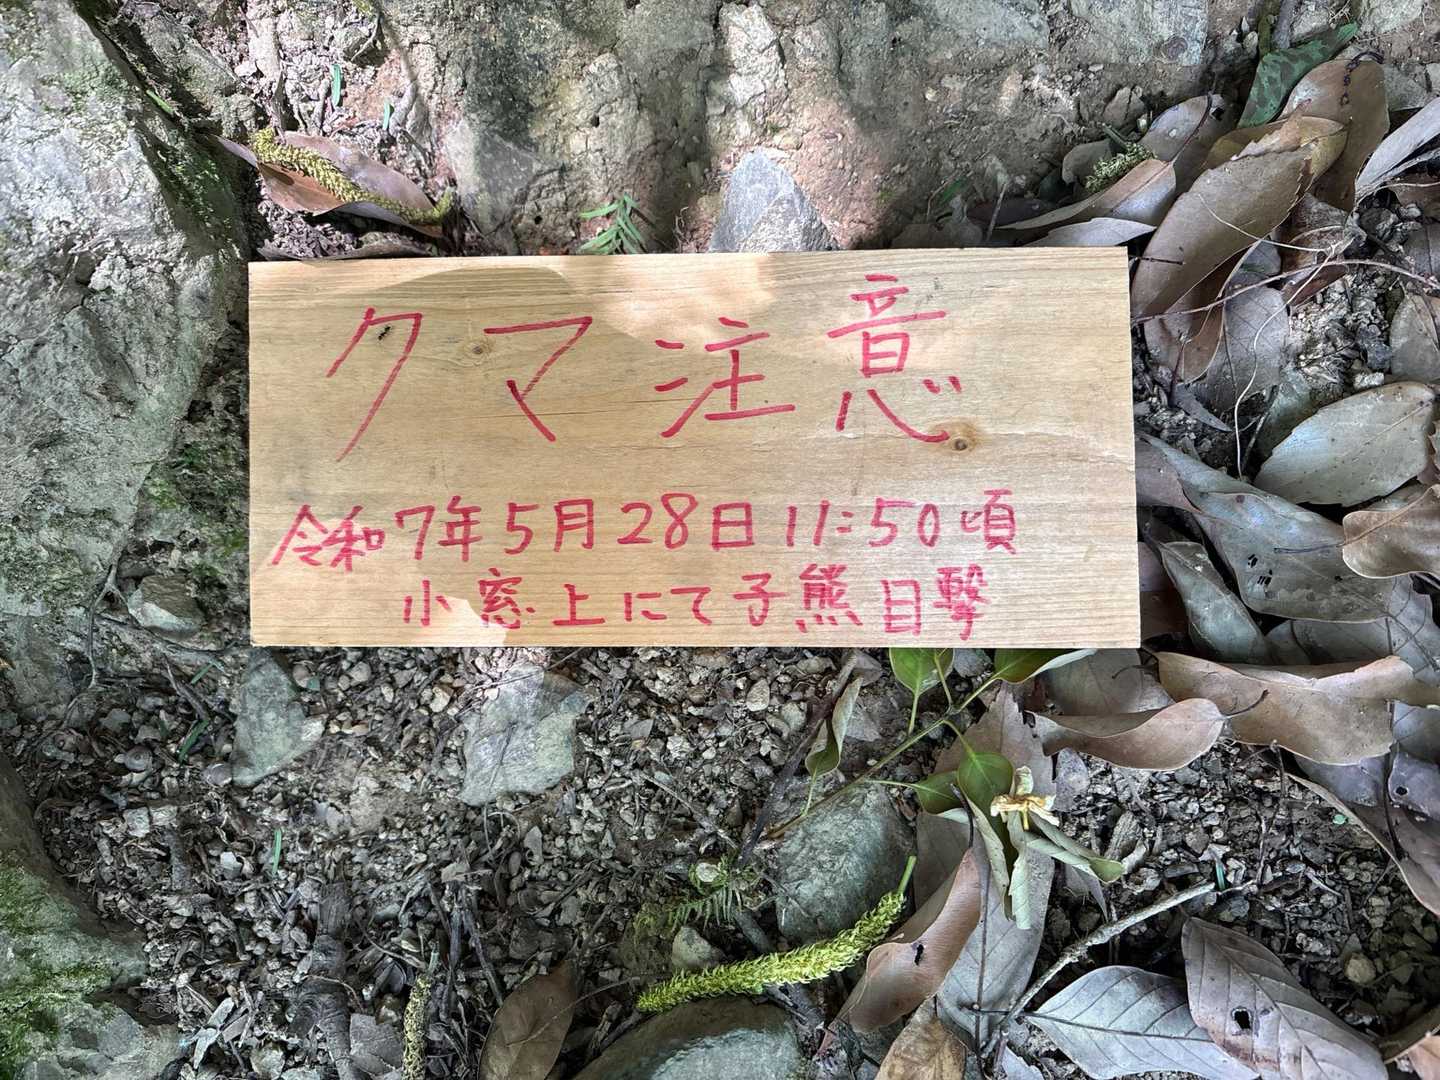 クマ注意
令和7年5月28日11:50頃
小窓上にて子熊目撃